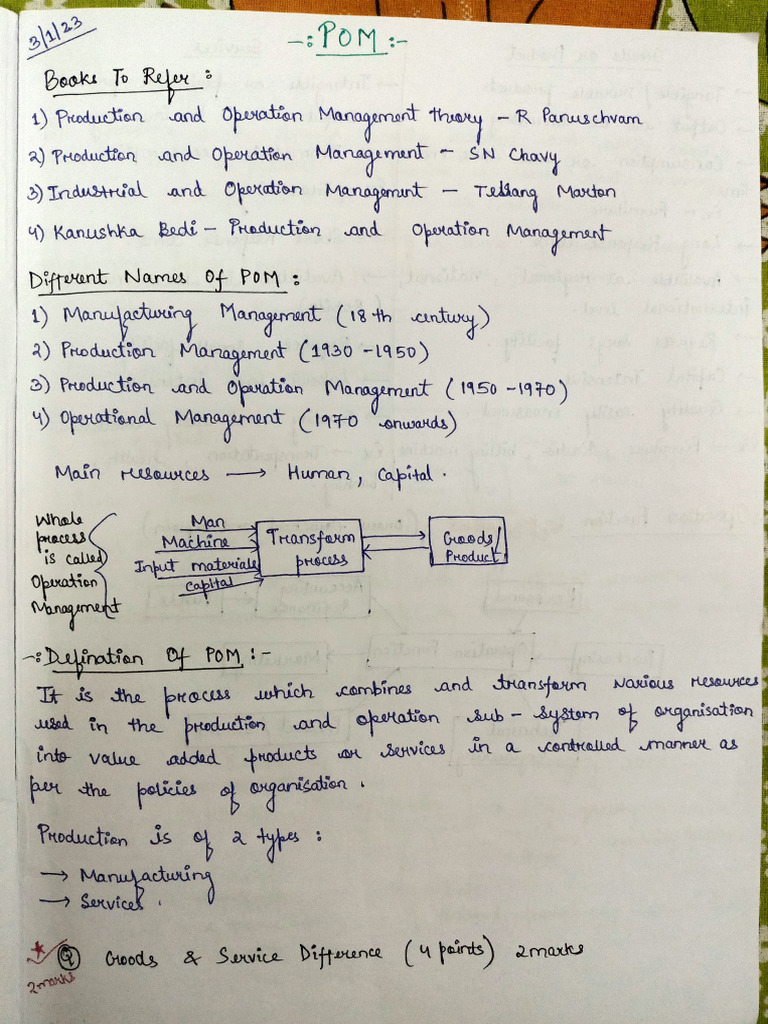 3/1/23
-: POM :-
Books To Refer :
1) Production and Operation Management theory - R Panuschvam
2) Production and Operation Management - SN Chavy
3) Industrial and Operation Management - Marton
4) Kanushka Bedi - Production and Operation Management
Different Names Of POM :
1) Manufacturing Management (18 th century)
2) Production Management (1930 - 1950)
3) Production and Operation Management (1950 - 1970)
4) Operational Management (1970 onwards)
Main resources → Human, Capital.
Whole process is called Operation Management
Man
Machine
Input materials
capital
Transform process
Goods/ Product
-: Defination Of POM :-
It is the process which combines and transform various resources
used in the production and operation sub - system of organisation
into value added products or services in a controlled manner as
per the policies of organisation.
Production is of 2 types :
→ Manufacturing
→ Services.
Q Goods & Service Difference (4 points) 2marks
2marks